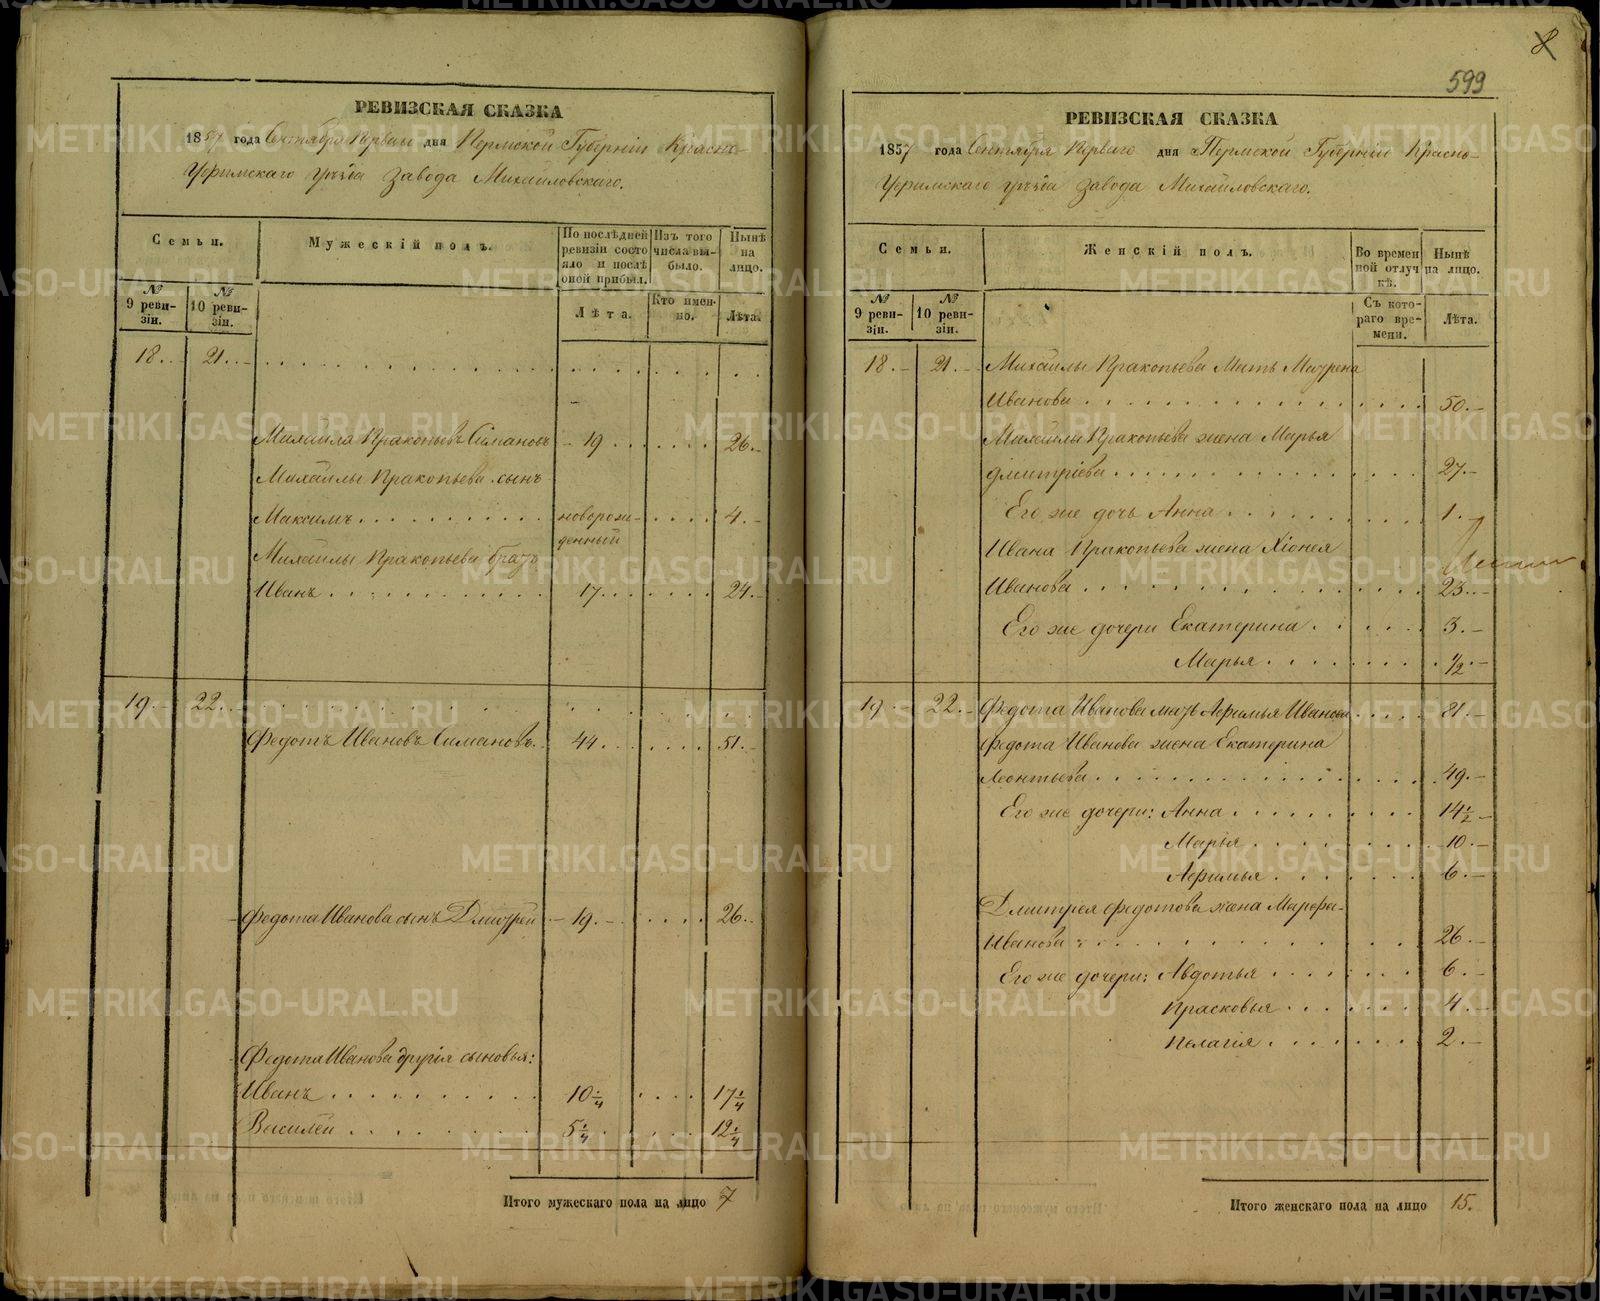 РЕВИЗСКАЯ СКАЗКА
1857 года Сентября Перваго дня Пермской Губерніи Красно-
Уфимскаго уѣзда завода Михайловскаго.
Семьи.
Мужескій полъ.
По послѣдней ревизіи состояло и послѣ оной прибыл.
Изъ того числа выбыло.
Нынѣ на лицо.
№ 9 ревизіи.
№ 10 ревизіи.
Лѣта.
Кто именно.
Лѣта.
18. 21.
Михайла Пракопьевъ Симановъ 19 26.
Михайлы Пракопьева сынъ
Максимъ новорожденный 4.
Михайлы Пракопьева братъ
Иванъ 17. 24.
19. 22.
Федотъ Ивановъ Симановъ 44. 51.
Федота Иванова сынъ Дмитрей 19. 26.
Федота Иванова другія сыновья:
Иванъ 10 1/4 17 1/4
Василей 5 1/4 12 1/4
Итого мужескаго пола на лицо 7
8
599
РЕВИЗСКАЯ СКАЗКА
1857 года Сентября Перваго дня Пермской Губерніи Красно-
Уфимскаго уѣзда завода Михайловскаго.
Семьи.
Женскій полъ.
Во временной отлучкѣ.
Нынѣ на лицо.
№ 9 ревизіи.
№ 10 ревизіи.
Съ котораго времени.
Лѣта.
18. 21. Михайлы Пракопьева Мать Матрена
Иванова 50.
Михайлы Пракопьева жена Марья
Дмитріева 27.
Его же дочь Анна 1.
Ивана Пракопьева жена Хіонея
Иванова 23.
Его же дочери Екатерина 3.
Марья 1/2.
19 22. Федота Иванова мать Афимья Иванова 81.
Федота Иванова жена Екатерина
Леонтьева 49.
Его же дочери: Анна 14 1/2
Марья 10.
Афимья 6.
Дмитрея Федотова жена Марфа
Иванова 26.
Его же дочери: Авдотья 6.
Прасковья 4.
Пелагія 2.
Итого женскаго пола на лицо 15.
METRIKI.GASO-URAL.RU